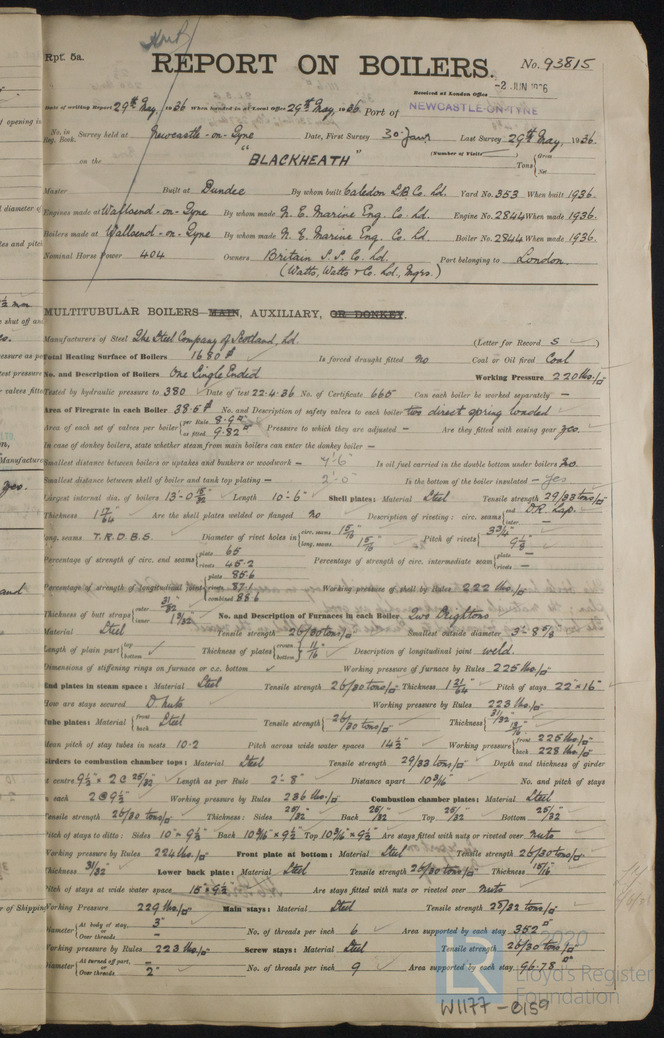 Rpt. 5a.
REPORT ON BOILERS.
No. 93815
Received at London Office 2 JUN 1936
Date of writing Report 29th May, 1936 When handed in at Local Office 29th May, 1936 Port of NEWCASTLE-ON-TYNE
No. in Reg. Book. Survey held at Newcastle-on-Tyne Date, First Survey 30 Jany Last Survey 29th May, 1936
(Number of Visits
on the "BLACKHEATH" Tons { Gross Net
Master Built at Dundee By whom built Caledon S.B. Co. Ld. Yard No. 353 When built 1936.
Engines made at Wallsend-on-Tyne By whom made N. E. Marine Eng. Co. Ld. Engine No. 2844 When made 1936.
Boilers made at Wallsend-on-Tyne By whom made N. E. Marine Eng. Co. Ld. Boiler No. 2844 When made 1936.
Nominal Horse Power 404 Owners Britain S.S. Co. Ld. Port belonging to London.
(Watts, Watts & Co. Ld., Mgrs.)
MULTITUBULAR BOILERS MAIN, AUXILIARY, OR DONKEY.
Manufacturers of Steel The Steel Company of Scotland, Ld. (Letter for Record S )
Total Heating Surface of Boilers 1680 Is forced draught fitted No Coal or Oil fired Coal
No. and Description of Boilers One Single Ended Working Pressure 220 lbs./□
Tested by hydraulic pressure to 380 Date of test 22.4.36 No. of Certificate 665 Can each boiler be worked separately —
Area of Firegrate in each Boiler 38.5 No. and Description of safety valves to each boiler two direct spring loaded
Area of each set of valves per boiler { per Rule 8.9 as fitted 9.82 Pressure to which they are adjusted — Are they fitted with easing gear yes.
In case of donkey boilers, state whether steam from main boilers can enter the donkey boiler —
Smallest distance between boilers or uptakes and bunkers or woodwork — Is oil fuel carried in the double bottom under boilers No.
Smallest distance between shell of boiler and tank top plating — 2'-0" Is the bottom of the boiler insulated — yes
Largest internal dia. of boilers 13'-0 15/32 Length 10'-6" Shell plates: Material Steel Tensile strength 29/33 tons/□
Thickness 1 17/64 Are the shell plates welded or flanged No Description of riveting: circ. seams { end D.R. Lap. inter. —
long. seams T.R.D.B.S. Diameter of rivet holes in { circ. seams 15/16 long. seams 15/16 Pitch of rivets { 3 3/4 9 1/8
Percentage of strength of circ. end seams { plate 65 rivets 45.2 Percentage of strength of circ. intermediate seam { plate — rivets —
Percentage of strength of longitudinal joint { plate 85.6 rivets 87.1 combined 88.6 Working pressure of shell by Rules 222 lbs./□
Thickness of butt straps { outer 31/32 inner 1 3/32 No. and Description of Furnaces in each Boiler Two Deightons
Material Steel Tensile strength 26/30 tons/□ Smallest outside diameter 3'-8 5/8
Length of plain part { top bottom Thickness of plates { crown bottom 11/16 Description of longitudinal joint weld.
Dimensions of stiffening rings on furnace or c.c. bottom Working pressure of furnace by Rules 225 lbs/□
End plates in steam space: Material Steel Tensile strength 26/30 tons/□ Thickness 1 21/64 Pitch of stays 22" × 16"
How are stays secured D. nuts Working pressure by Rules 223 lbs./□
Tube plates: Material { front back Steel Tensile strength { 26/30 tons/□ Thickness { 31/32 13/16
Mean pitch of stay tubes in nests 10.2 Pitch across wide water spaces 14 1/2 Working pressure { front 225 lbs/□ back 228 lbs/□
Girders to combustion chamber tops: Material Steel Tensile strength 29/33 tons/□ Depth and thickness of girder
at centre 9 1/2" × 2 @ 25/32 Length as per Rule 2'-8" Distance apart 10 3/16" No. and pitch of stays
in each 2 @ 9 1/2" Working pressure by Rules 236 lbs./□ Combustion chamber plates: Material Steel
Tensile strength 26/30 tons/□ Thickness: Sides 25/32 Back 25/32 Top 25/32 Bottom 25/32
Pitch of stays to ditto: Sides 10" × 9 1/2" Back 10 3/16" × 9 1/2" Top 10 3/16" × 9 1/2" Are stays fitted with nuts or riveted over nuts
Working pressure by Rules 224 lbs/□ Front plate at bottom: Material Steel Tensile strength 26/30 tons/□
Thickness 31/32 Lower back plate: Material Steel Tensile strength 26/30 tons/□ Thickness 15/16
Pitch of stays at wide water space 15" × 9 1/2" Are stays fitted with nuts or riveted over nuts
Working Pressure 229 lbs./□ Main stays: Material Steel Tensile strength 28/32 tons/□
Diameter { At body of stay, 3" Over threads — No. of threads per inch 6 Area supported by each stay 352
Working pressure by Rules 223 lbs/□ Screw stays: Material Steel Tensile strength 26/30 tons/□
Diameter { At turned off part, — Over threads 2" No. of threads per inch 9 Area supported by each stay 96.78
© 2020
Lloyd's Register
Foundation
W1177-0159